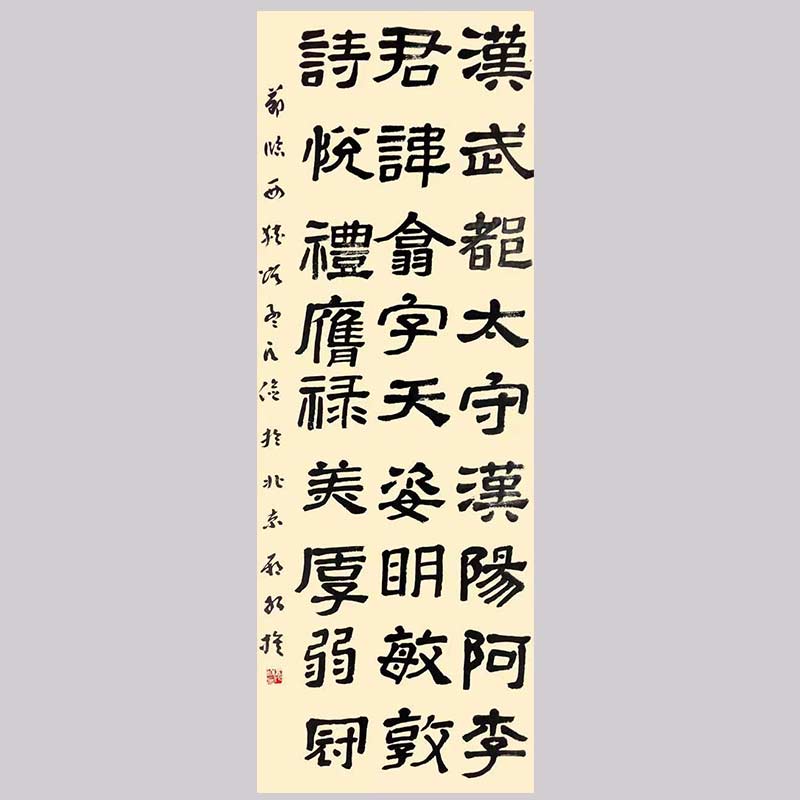 漢武都太守漢陽阿李
君諱翕字天姿明敏敦
詩悅禮膺禄美厚弱冠
節臨西狹頌於北京